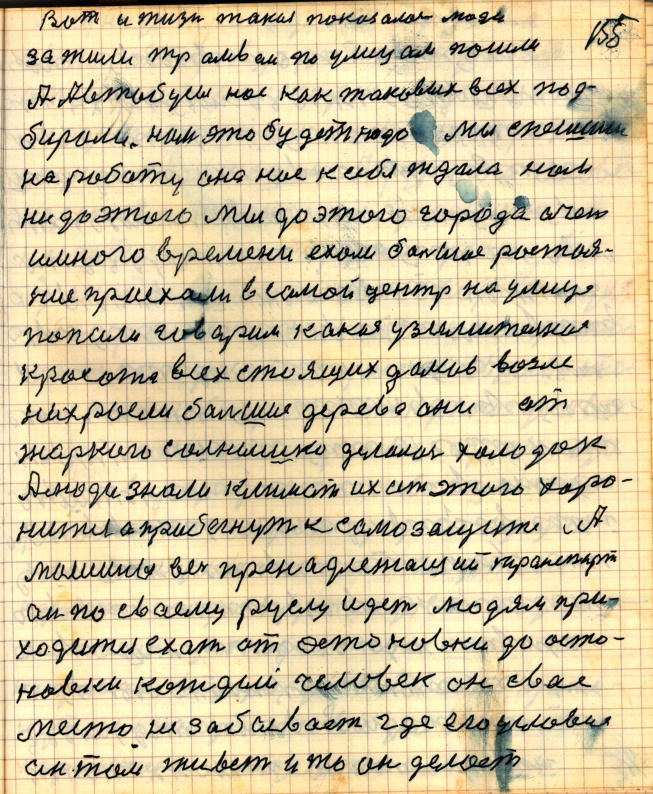 155
Вот и жизн такая показалас люди
зажили трамваи по улицам пошли
А Автобусы нас как таковых всех под-
бирали. нам это будет надо Мы спешили
на работу она нас к себя ждала нам
не до этого Мы до этого города очен
много времени ехали болшиеростоя-
ние приехали в самой центр на улице
попали говарим какая узымителная
красота всех стоящих домов возле
них росли болшие дерева они от
жаркого солнышко делали холодок
А люди знали климат их от этого харо-
нится прибегнут к самозащите. А
машины вес пренадлежащий транспорт
он по сваему руслу идет людям при-
ходится ехат от остоновки до осто-
новки кождый человек он свае
место не забывает где его условия
он там живет и то он делает